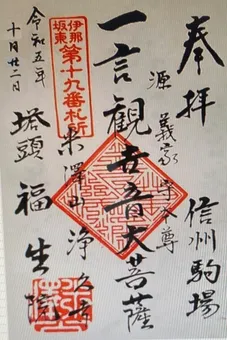 奉拝
信州駒場
源義家守本尊
一言観世音大菩薩
伊那
坂東
第十九番札所
米澤山 浄久寺
塔頭 福生院
令和五年
十月廿二日